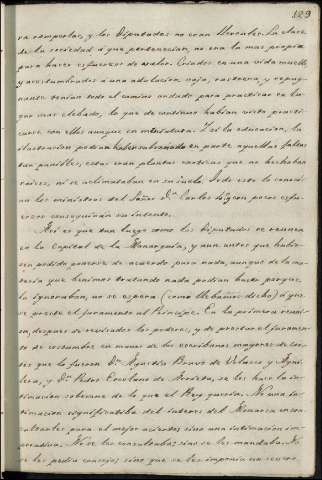 129
ra romperlas, y los Diputados no eran Hercules. La clase
de la sociedad á que pertenecian, no era la mas propia
para hacer esfuerzos de valor. Criados en una vida muelle
y acostumbrados á una adulacion baja, rastrera y repug-
nante tenian todo el camino andado para practicar en lu-
gar mas elebado, lo que de continuo habian visto practi-
carse con ellos aunque en miniatura. Y si la educacion, la
ilustracion podian haber subsanado en parte aquellas faltas
tan punibles, estas eran plantas exoticas que no hechaban
raices, ni se aclimataban en su suelo. Todo esto lo conocian
los ministros del Señor Dn. Carlos 4º y con pocos esfu-
erzos conseguirán su intento.
Asi es que tan luego como los Diputados se reunen
en la Capital de la Monarquia, y aun antes que hubie-
sen podido ponerse de acuerdo para nada, aunque de la ma-
teria que henimos tratando nada podian hacer porque
la ignoraban, no se espera (como llebamos dicho) á que
se preste el juramento al Principe. En la primera reuni-
on, despues de revisados los poderes, y de prestar el juramen-
to de costumbre en manos de los escribanos mayores de Cor-
tes que lo fueron Dn. Agustin Bravo de Velasco y Agui-
lera, y Dn. Pedro Escolano de Arrieta, se les hace la in-
timacion soberana de lo que el Rey queria. No una in-
timacion significatiba del interes del Monarca en con-
sultarles para el mejor acierto sino una intimacion im-
perativa. No se les consultaba; sino se les mandaba. No
se les pedia consejo; sino que se les imponia un severo